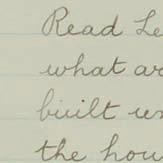 Read Le
what ar
built us
the hou